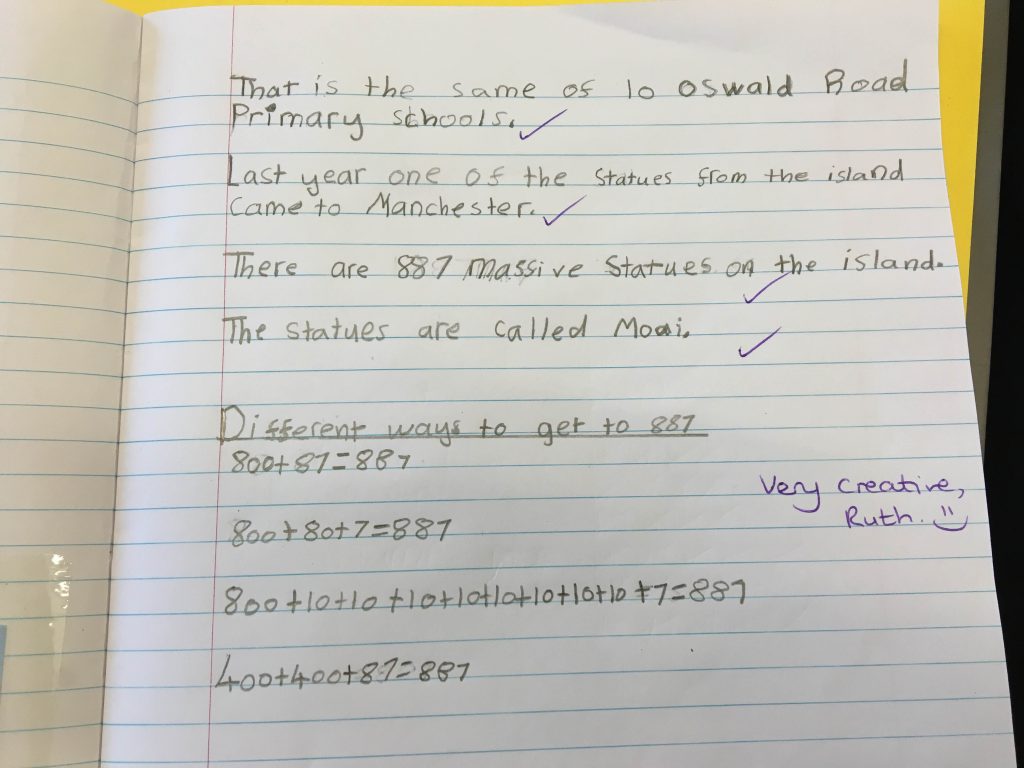 That is the same of 10 Oswald Road
Primary schools.
Last year one of the statues from the island
Came to Manchester.
There are 887 massive statues on the island.
The statues are called Moai.
Different ways to get to 887
800+87=887
Very creative,
Ruth. :)
800+80+7=887
800+10+10+10+10+10+10+10+10+7=887
400+400+87=887